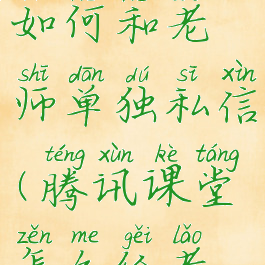 如何和老
shī dān dú sī xìn
师单独私信
téng xùn kè táng
(腾讯课堂
zěn me gěi lǎo
怎么给老